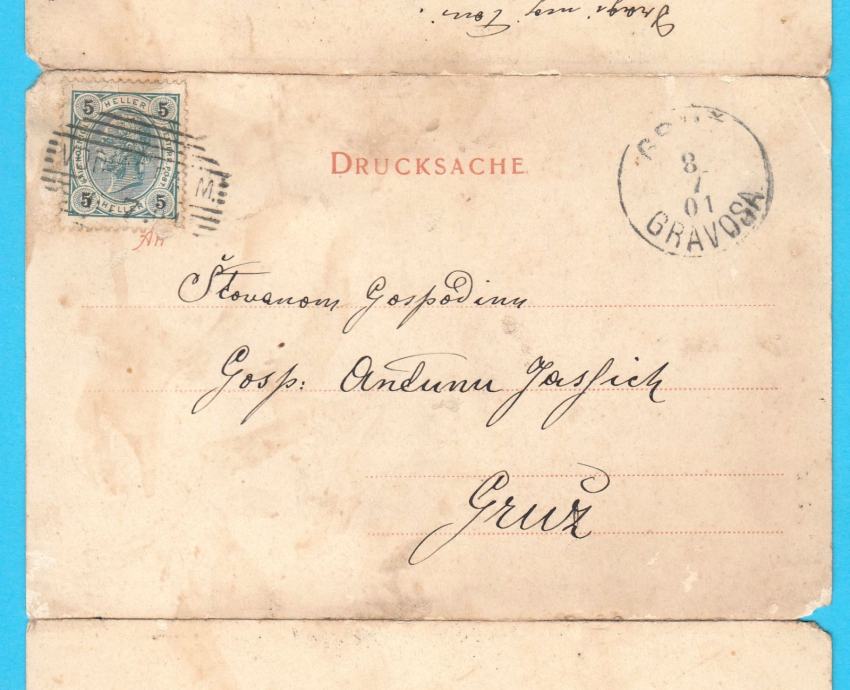 Dragi moj Toni.
5 HELLER 5
5 HELLER 5
DRUCKSACHE
GRUŽ
8
7
01
GRAVOSA
M.
An
Štovanom Gospodinu
Gosp: Andunu Jassich
Gruž